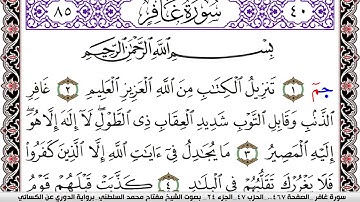 ٤٠ سُورَةُ غَافِرٍ ٨٥
بِسْمِ اللَّهِ الرَّحْمَٰنِ الرَّحِيمِ
حمٓ ١ تَنزِيلُ الْكِتَابِ مِنَ اللَّهِ الْعَزِيزِ الْعَلِيمِ ٢ غَافِرِ
الذَّنۢبِ وَقَابِلِ التَّوْبِ شَدِيدِ الْعِقَابِ ذِي الطَّوْلِ لَا إِلَٰهَ إِلَّا هُوَ
إِلَيْهِ الْمَصِيرُ ٣ مَا يُجَادِلُ فِي ءَايَاتِ اللَّهِ إِلَّا الَّذِينَ كَفَرُوا
فَلَا يَغْرُرْكَ تَقَلُّبُهُمْ فِي الْبِلَادِ ٤ كَذَّبَتْ قَبْلَهُمْ قَوْمُ
سورة غافر .. الصفحة ٤٦٧.. الحزب ٤٧ .. الجزء ٢٤.. بصوت الشيخ مفتاح محمد السلطني .برواية الدوري عن الكسائي